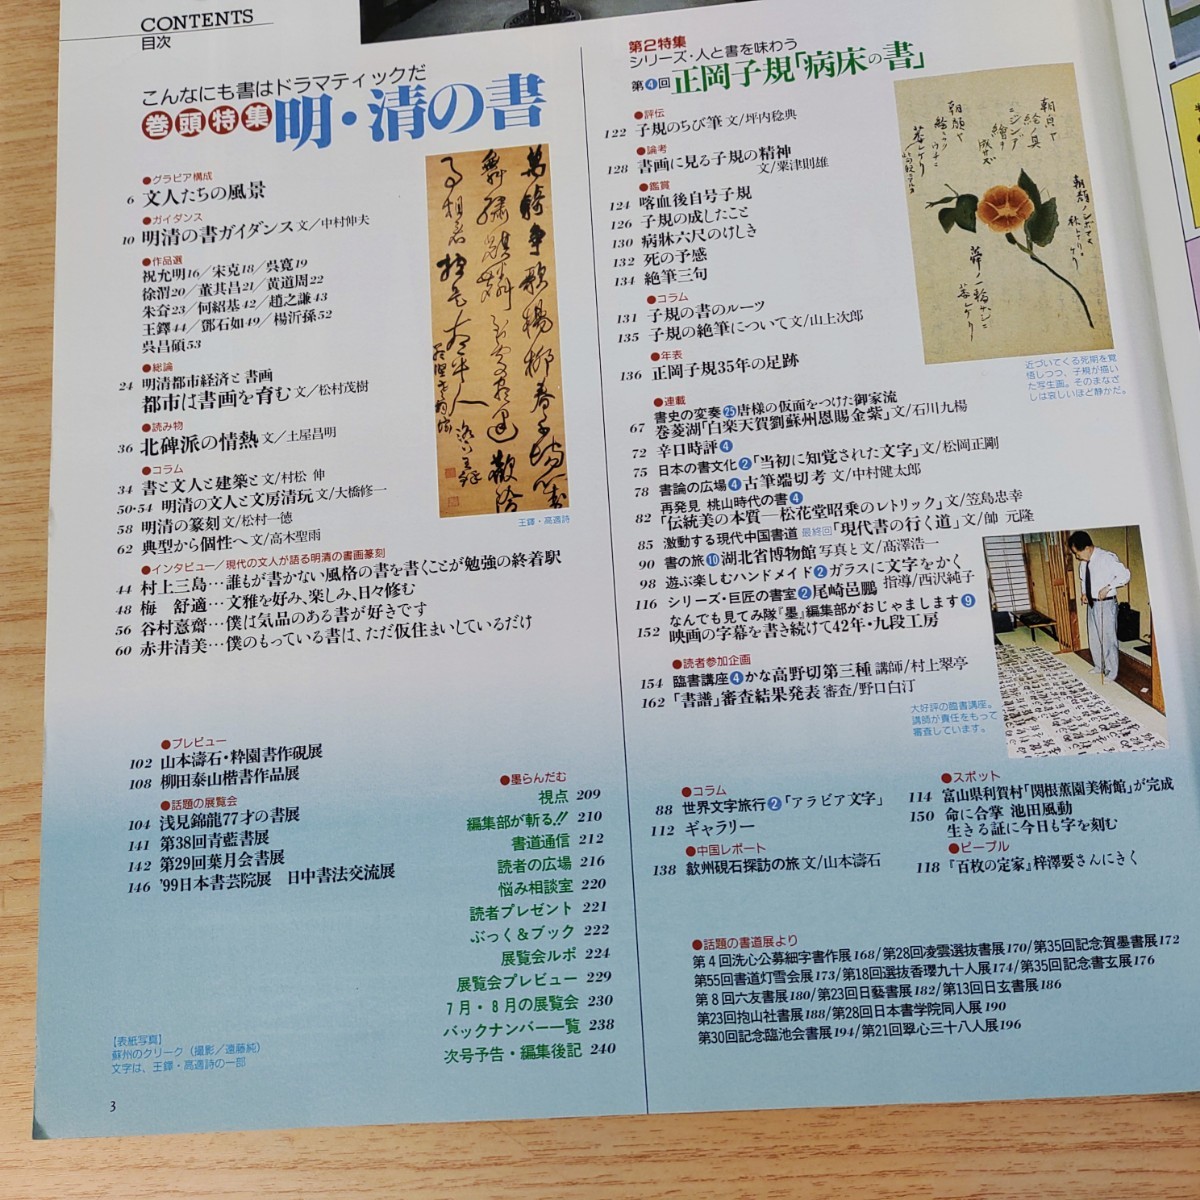 CONTENTS
目次
こんなにも書はドラマティックだ
巻頭特集 明・清の書
●グラビア構成
6 文人たちの風景
●ガイダンス
10 明清の書ガイダンス 文／中村伸夫
●作品選
祝允明16／宋克18／呉寛19
徐渭20／董其昌21／黄道周22
朱耷23／何紹基42／趙之謙43
王鐸44／鄧石如49／楊沂孫52
呉昌碩53
●総論
24 明清都市経済と書画
都市は書画を育む 文／松村茂樹
●読み物
36 北碑派の情熱 文／土屋昌明
●コラム
34 書と文人と建築と 文／村松 伸
50・54 明清の文人と文房清玩 文／大橋修一
58 明清の篆刻 文／松村一徳
62 典型から個性へ 文／高木聖雨
●インタビュー／現代の文人が語る明清の書画篆刻
44 村上三島…誰もが書かない風格の書を書くことが勉強の終着駅
48 梅 舒適…文雅を好み、楽しみ、日々修む
56 谷村憙齋…僕は気品のある書が好きです
60 赤井清美…僕のもっている書は、ただ仮住まいしているだけ
王鐸・高適詩
●プレビュー
102 山本濤石・粋園書作硯展
108 柳田泰山楷書作品展
●話題の展覧会
104 浅見錦龍77才の書展
141 第38回青藍書展
142 第29回葉月会書展
146 '99日本書芸院展 日中書法交流展
●墨らんだむ
視点 209
編集部が斬る!! 210
書道通信 212
読者の広場 216
悩み相談室 220
読者プレゼント 221
ぶっく＆ブック 222
展覧会ルポ 224
展覧会プレビュー 229
7月・8月の展覧会 230
バックナンバー一覧 238
次号予告・編集後記 240
【表紙写真】
蘇州のクリーク（撮影／遠藤純）
文字は、王鐸・高適詩の一部
3
第2特集
シリーズ・人と書を味わう
第4回 正岡子規「病床の書」
●評伝
122 子規のちび筆 文／坪内稔典
●論考
128 書画に見る子規の精神
文／粟津則雄
●鑑賞
124 喀血後自号子規
126 子規の成したこと
130 病牀六尺のけしき
132 死の予感
134 絶筆三句
●コラム
131 子規の書のルーツ
135 子規の絶筆について 文／山上次郎
●年表
136 正岡子規35年の足跡
近づいてくる死期を覚
悟しつつ、子規が描い
た写生画。そのまなざ
しは哀しいほど静かだ。
●連載
書史の変奏25 唐様の仮面をつけた御家流
67 巻菱湖「白楽天賀劉蘇州恩賜金紫」 文／石川九楊
72 辛口時評4
75 日本の書文化2「当初に知覚された文字」 文／松岡正剛
78 書論の広場4 古筆端切考 文／中村健太郎
再発見 桃山時代の書4
82 「伝統美の本質―松花堂昭乗のレトリック」 文／笠島忠幸
85 激動する現代中国書道 最終回「現代書の行く道」 文／帥 元隆
90 書の旅10 湖北省博物館 写真と文／髙澤浩一
98 遊ぶ楽しむハンドメイド2 ガラスに文字をかく
指導／西沢純子
116 シリーズ・巨匠の書室2 尾崎邑鵬
なんでも見てみ隊『墨』編集部がおじゃまします9
152 映画の字幕を書き続けて42年・九段工房
●読者参加企画
154 臨書講座4 かな高野切第三種 講師／村上翠亭
162 「書譜」審査結果発表 審査／野口白汀
大好評の臨書講座。
講師が責任をもって
審査しています。
●コラム
88 世界文字旅行2「アラビア文字」
112 ギャラリー
●中国レポート
138 歙州硯石探訪の旅 文／山本濤石
●スポット
114 富山県利賀村「関根薫園美術館」が完成
150 命に合掌 池田風動
生きる証に今日も字を刻む
●ピープル
118 『百枚の定家』梓澤要さんにきく
●話題の書道展より
第4回洗心公募細字書作展168／第28回凌雲選抜書展170／第35回記念賀墨書展172
第55回書道灯雪会展173／第18回選抜香瓔九十人展174／第35回記念書玄展176
第8回六友書展180／第23回日藝書展182／第13回日玄書展186
第23回抱山社書展188／第28回日本書学院同人展190
第30回記念臨池会書展194／第21回翠心三十八人展196